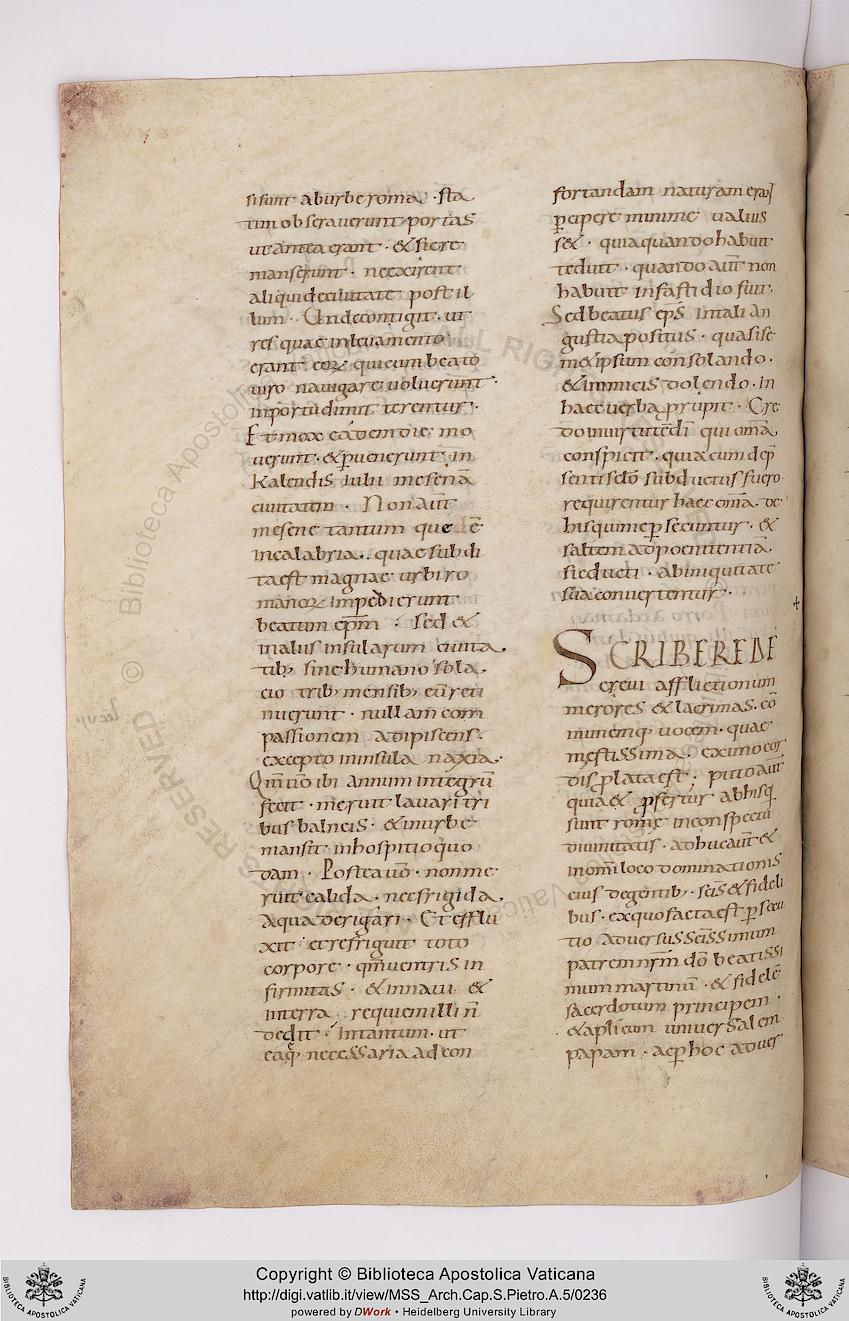 si sunt ab urbe roma · sta
tim obseraverunt portas
ut antea erant · & sic re
manserunt · nec exirent
aliqui de civitate post il
lum · Unde contigit · ut
res quae in levamento
erant eoꝝ qui cum beato
viro navigare voluerunt ·
in portu dimitterentur ·
Et mox eadem die mo
verunt · & ꝑvenerunt in
Kalendis iulii mesenā
civitatem · Non aūt
mesene tantum que ē
in calabria · quae subdi
ta est magnae urbi ro
manoꝝ impedierunt
beatum epm̄ : sed &
in aliis insularum civita ·
tib; sine humano sola ·
cio trib; mensib; eū reti
nuerunt · nullam com
passionem adipiscens ·
excepto in insula naxia ·
Qm̄ vō ibi annum integrū
fecit · meruit lavari tri
bus balneis · & in urbe
mansit in hospitio quo
dam · Postea vō · non me
ruit calida · nec frigida ·
aqua derigari · Et efflu
xit et refriguit toto
corpore · qm̄ ventris in
firmitas · & in navi &
in terra requiem illi n̄
dedit · Intantum · ut
eaq; necessaria ad con
fortandam naturam erant
ꝑcipere minime valuis
s& · quia quando habuit
reddidit · quando aūt non
habuit in fastidio fuit ·
Sed beatus eps̄ in tali an
gustia positus · quasi se
m&ipsum consolando ·
& inimicis dolendo · in
haec verba prupit · Cre
do in virtutē dī qui oma
conspicit · quia cum de p̄
senti sclo subductus fuero
requirentur haec oma · de
his qui me ꝑsecuntur · &
saltem ad poenitentiā
sic ducti · ab iniquitate
sua convertentur ·
SCRIBERE DE
crevi afflictionum
merores & lacrimas · cō
munemq; vocem · quae
mestissima · ex imo cor
dis ꝓlata est · puto aūt
quia & ꝓfertur ab hisq
sunt rome in conspectu
divinitatis · adhuc aūt &
in omi loco dominationis
eius degentib; scīs & fideli
bus · ex quo facta est ꝑsecu
tio adversus scissimum
patrem nrm̄ do beatissi
mum martinū · & fidelē
sacerdotum principem ·
& aplicum universalem
papam · ac ꝑ hoc adver
Copyright © Biblioteca Apostolica Vaticana
http://digi.vatlib.it/view/MSS_Arch.Cap.S.Pietro.A.5/0236
powered by DWork • Heidelberg University Library